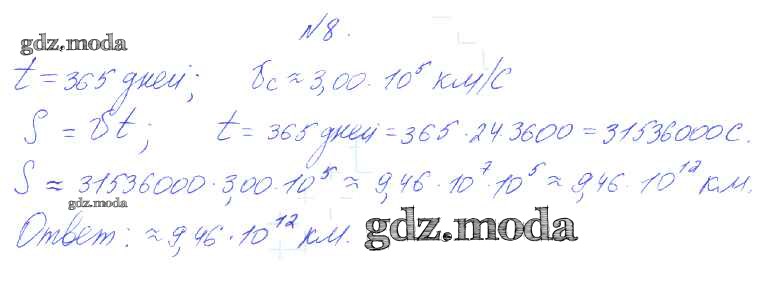 N8.
gdz.moda
t = 365 дней; υc ≈ 3,00 · 10⁵ км/с
S = υt; t = 365 дней = 365 · 24 · 3600 = 31536000 с.
S ≈ 31536000 · 3,00 · 10⁵ ≈ 9,46 · 10⁷ · 10⁵ ≈ 9,46 · 10¹² км.
gdz.moda
Ответ: ≈ 9,46 · 10¹² км.
gdz.moda